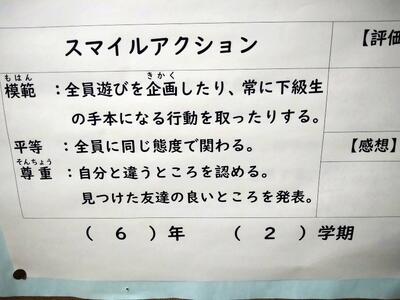 スマイルアクション
【評価
もはん きかく
模範 ：全員遊びを企画したり、常に下級生
の手本になる行動を取ったりする。
平等 ：全員に同じ態度で関わる。
【感想】
そんちょう
尊重 ：自分と違うところを認める。
見つけた友達の良いところを発表。
（ ６ ）年 （ ２ ）学期